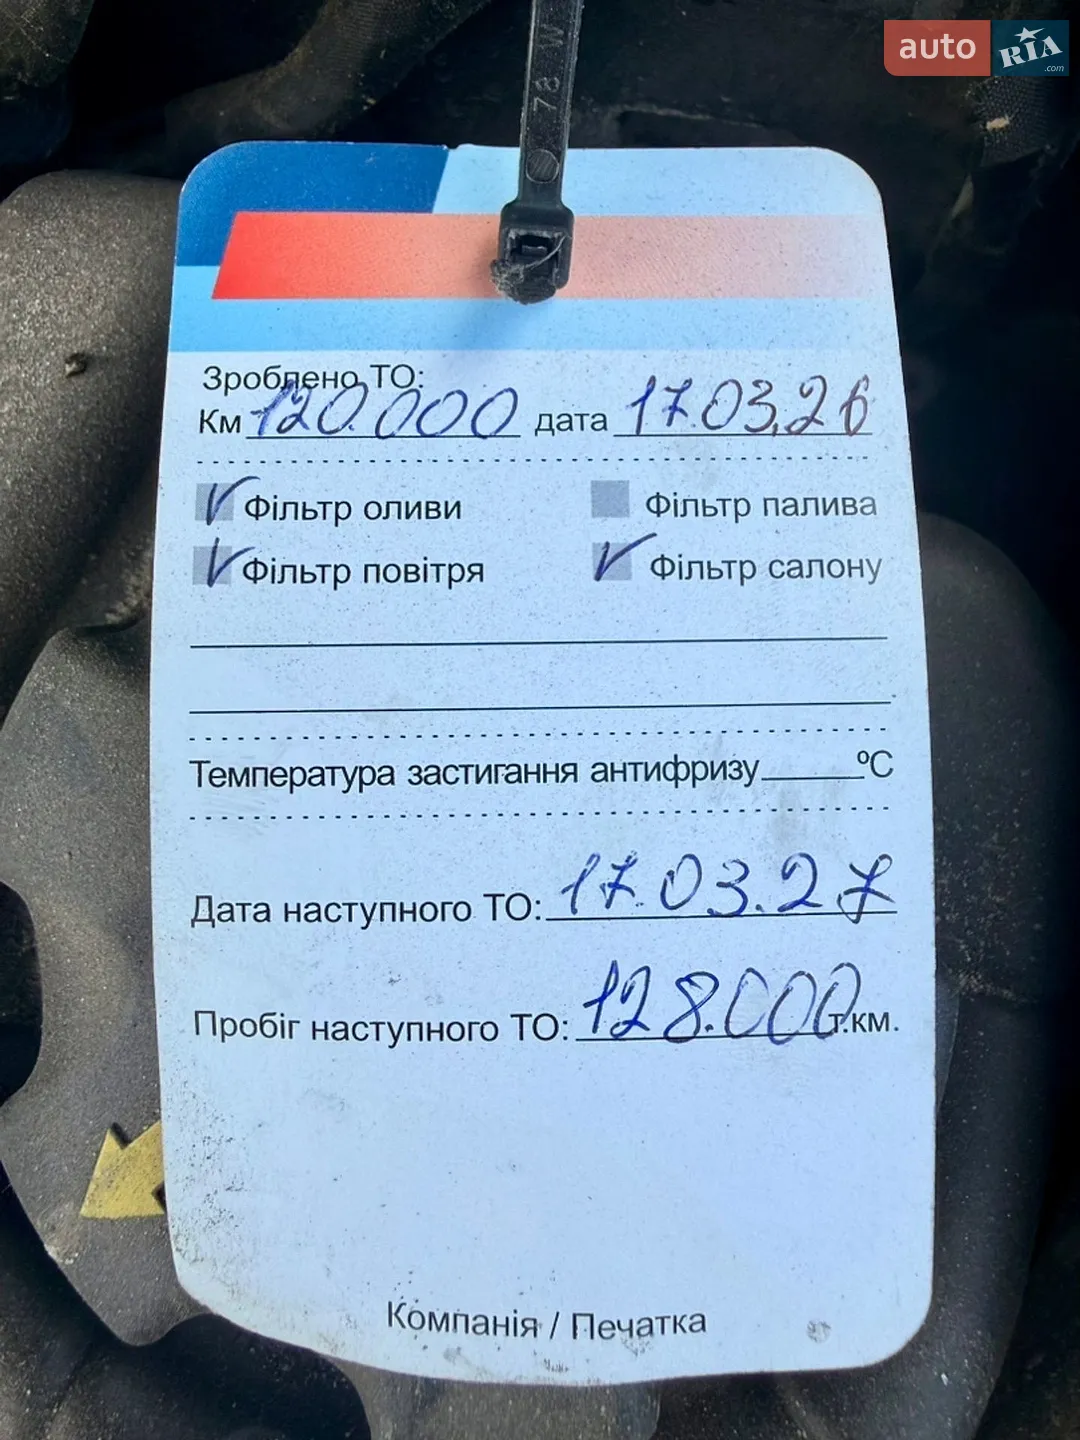 auto RIA.com
78 W
Зроблено ТО:
Км 120.000 дата 17.03.26
Фільтр оливи Фільтр палива
Фільтр повітря Фільтр салону
Температура застигання антифризу ºС
Дата наступного ТО: 17.03.27
Пробіг наступного ТО: 128.000 т.км.
Компанія / Печатка